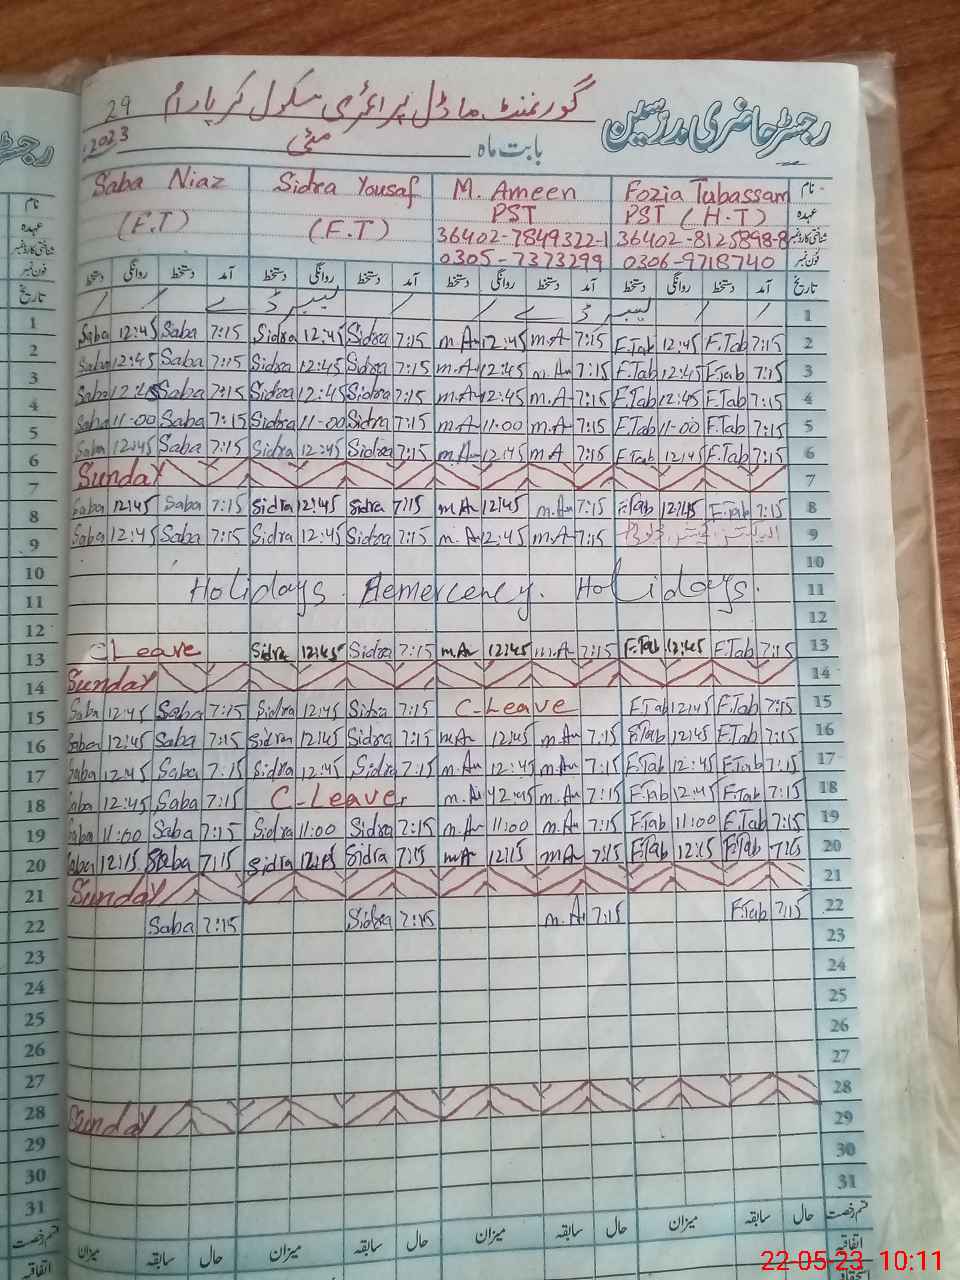 29 گورنمنٹ ماڈل پرائمری سکول کر پارام رجسٹر حاضری مدرسین
2023 مئی بابت ماہ
Saba Niaz Sidra Yousaf M. Ameen Fozia Tabassam نام
(E.T) (E.T) PST PST (H.T) عہدہ
36402-7849322-1 36402-8125898-8 شناختی کارڈ نمبر
0305-7373299 0306-9718740 فون نمبر
تاریخ دستخط روانگی دستخط آمد دستخط روانگی دستخط آمد دستخط روانگی دستخط آمد دستخط روانگی دستخط آمد تاریخ
1 لیبر ڈے لیبر ڈے 1
2 Saba 12:45 Saba 7:15 Sidra 12:45 Sidra 7:15 m.A 12:45 m.A 7:15 F.Tab 12:45 F.Tab 7:15 2
3 Saba 12:45 Saba 7:15 Sidra 12:45 Sidra 7:15 m.A 12:45 m.A 7:15 F.Tab 12:45 F.Tab 7:15 3
4 Saba 12:45 Saba 7:15 Sidra 12:45 Sidra 7:15 m.A 12:45 m.A 7:15 F.Tab 12:45 F.Tab 7:15 4
5 Saba 11-00 Saba 7:15 Sidra 11-00 Sidra 7:15 m.A 11:00 m.A 7:15 F.Tab 11-00 F.Tab 7:15 5
6 Saba 12:45 Saba 7:15 Sidra 12:45 Sidra 7:15 m.A 12:45 m.A 7:15 F.Tab 12:45 F.Tab 7:15 6
7 Sunday 7
8 Saba 12:45 Saba 7:15 Sidra 12:45 Sidra 7:15 m.A 12:45 m.A 7:15 F.Tab 12:45 F.Tab 7:15 8
9 Saba 12:45 Saba 7:15 Sidra 12:45 Sidra 7:15 m.A 12:45 m.A 7:15 9
10 10
11 Holidays. Aemercency. Holidays. 11
12 12
13 C Leave Sidra 12:45 Sidra 7:15 m.A 12:45 m.A 7:15 F.Tab 12:45 F.Tab 7:15 13
14 Sunday 14
15 Saba 12:45 Saba 7:15 Sidra 12:45 Sidra 7:15 C-Leave F.Tab 12:45 F.Tab 7:15 15
16 Saba 12:45 Saba 7:15 Sidra 12:45 Sidra 7:15 m.A 12:45 m.A 7:15 F.Tab 12:45 F.Tab 7:15 16
17 Saba 12:45 Saba 7:15 Sidra 12:45 Sidra 7:15 m.A 12:45 m.A 7:15 F.Tab 12:45 F.Tab 7:15 17
18 Saba 12:45 Saba 7:15 C-Leave m.A 12:45 m.A 7:15 F.Tab 12:45 F.Tab 7:15 18
19 Saba 11:00 Saba 7:15 Sidra 11:00 Sidra 7:15 m.A 11:00 m.A 7:15 F.Tab 11:00 F.Tab 7:15 19
20 Saba 12:15 Saba 7:15 Sidra 12:15 Sidra 7:15 m.A 12:15 m.A 7:15 F.Tab 12:15 F.Tab 7:15 20
21 Sunday 21
22 Saba 7:15 Sidra 7:15 m.A 7:15 F.Tab 7:15 22
23 23
24 24
25 25
26 26
27 27
28 Sunday 28
29 29
30 30
31 31
قسم رخصت میزان سابقہ حال میزان سابقہ حال میزان سابقہ حال میزان سابقہ حال قسم رخصت
اتفاقیہ اتفاقیہ
22-05-23 10:11